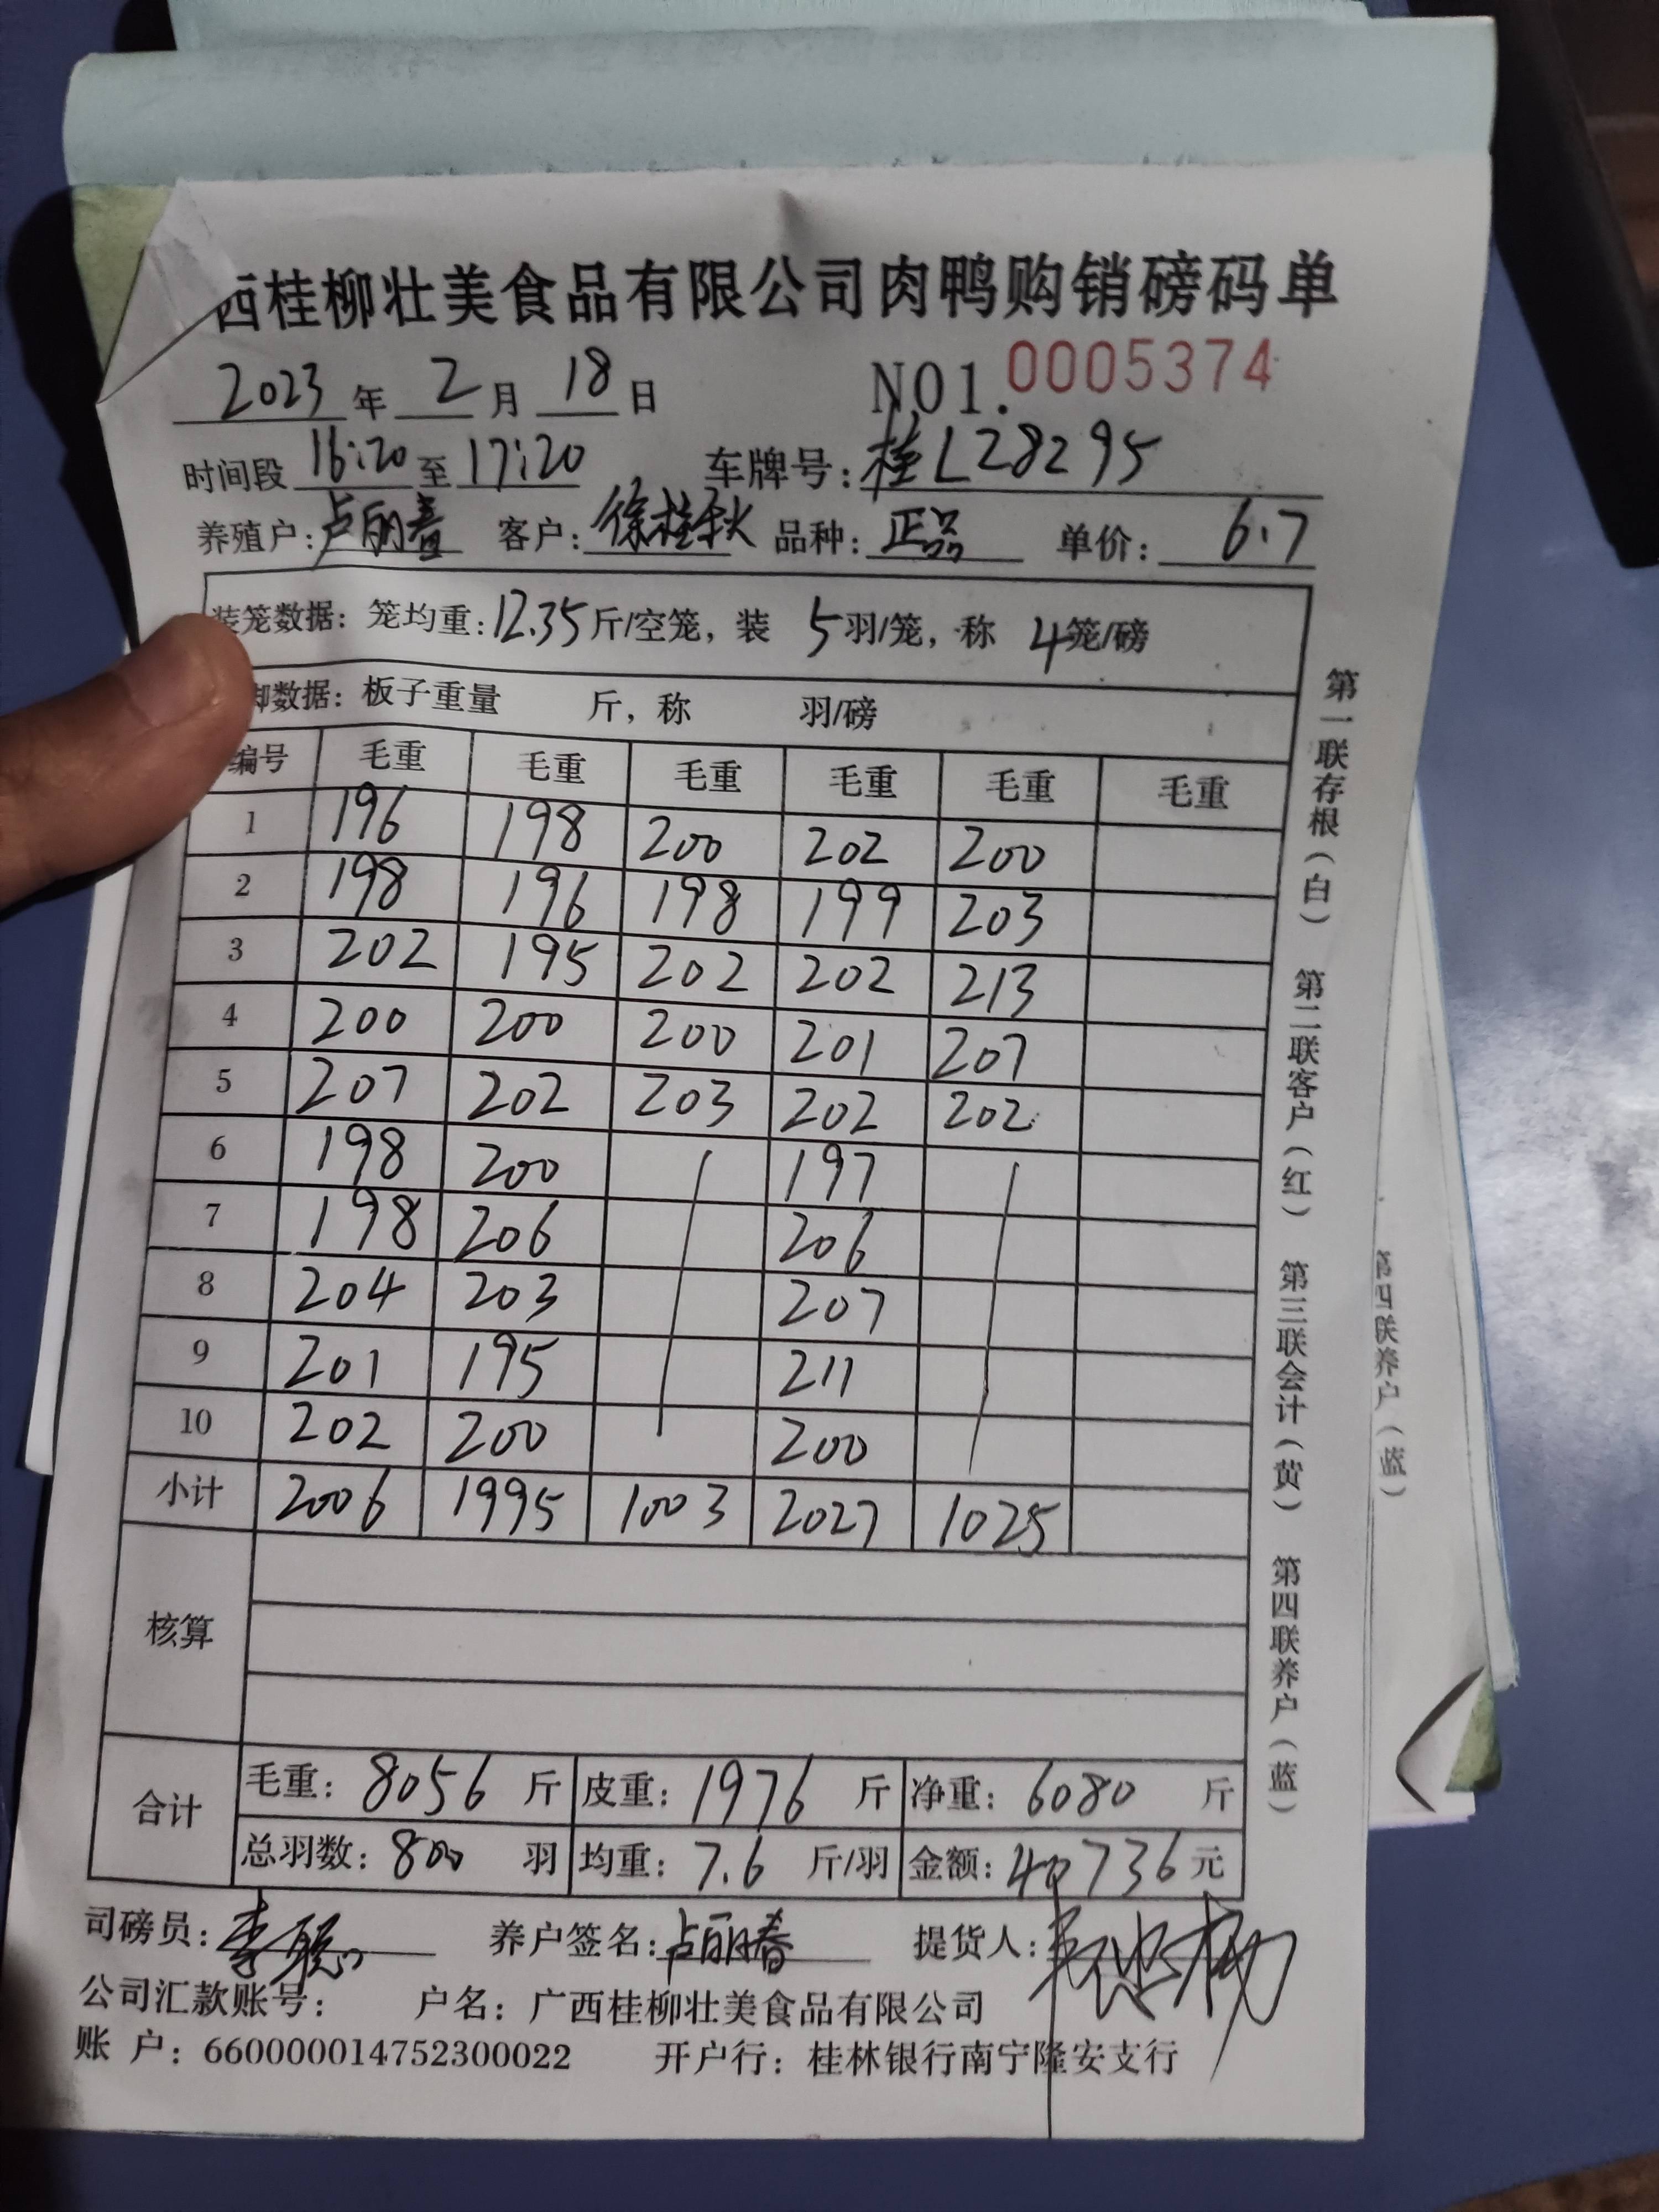 西桂柳壮美食品有限公司肉鸭购销磅码单
2023年 2月 18日 NO1.0005374
时间段 16:20至17:20 车牌号:桂L28295
养殖户:卢丽春 客户:徐桂秋 品种:正品 单价:6.7
装笼数据:笼均重:12.35斤/空笼,装 5羽/笼,称 4笼/磅
脚数据:板子重量 斤,称 羽/磅
编号 毛重 毛重 毛重 毛重 毛重 毛重
1 196 198 200 202 200
2 198 196 198 199 203
3 202 195 202 202 213
4 200 200 200 201 207
5 207 202 203 202 202
6 198 200 197
7 198 206 206
8 204 203 207
9 201 195 211
10 202 200 200
小计 2006 1995 1003 2027 1025
核算
合计 毛重:8056斤 皮重:1976斤 净重:6080斤
总羽数:800羽 均重:7.6斤/羽 金额:40736元
司磅员:李聪 养户签名:卢丽春 提货人:
公司汇款账号: 户名:广西桂柳壮美食品有限公司
账 户:660000014752300022 开户行:桂林银行南宁隆安支行
第一联存根(白) 第二联客户(红) 第三联会计(黄) 第四联养户(蓝)
第四联养户(蓝)